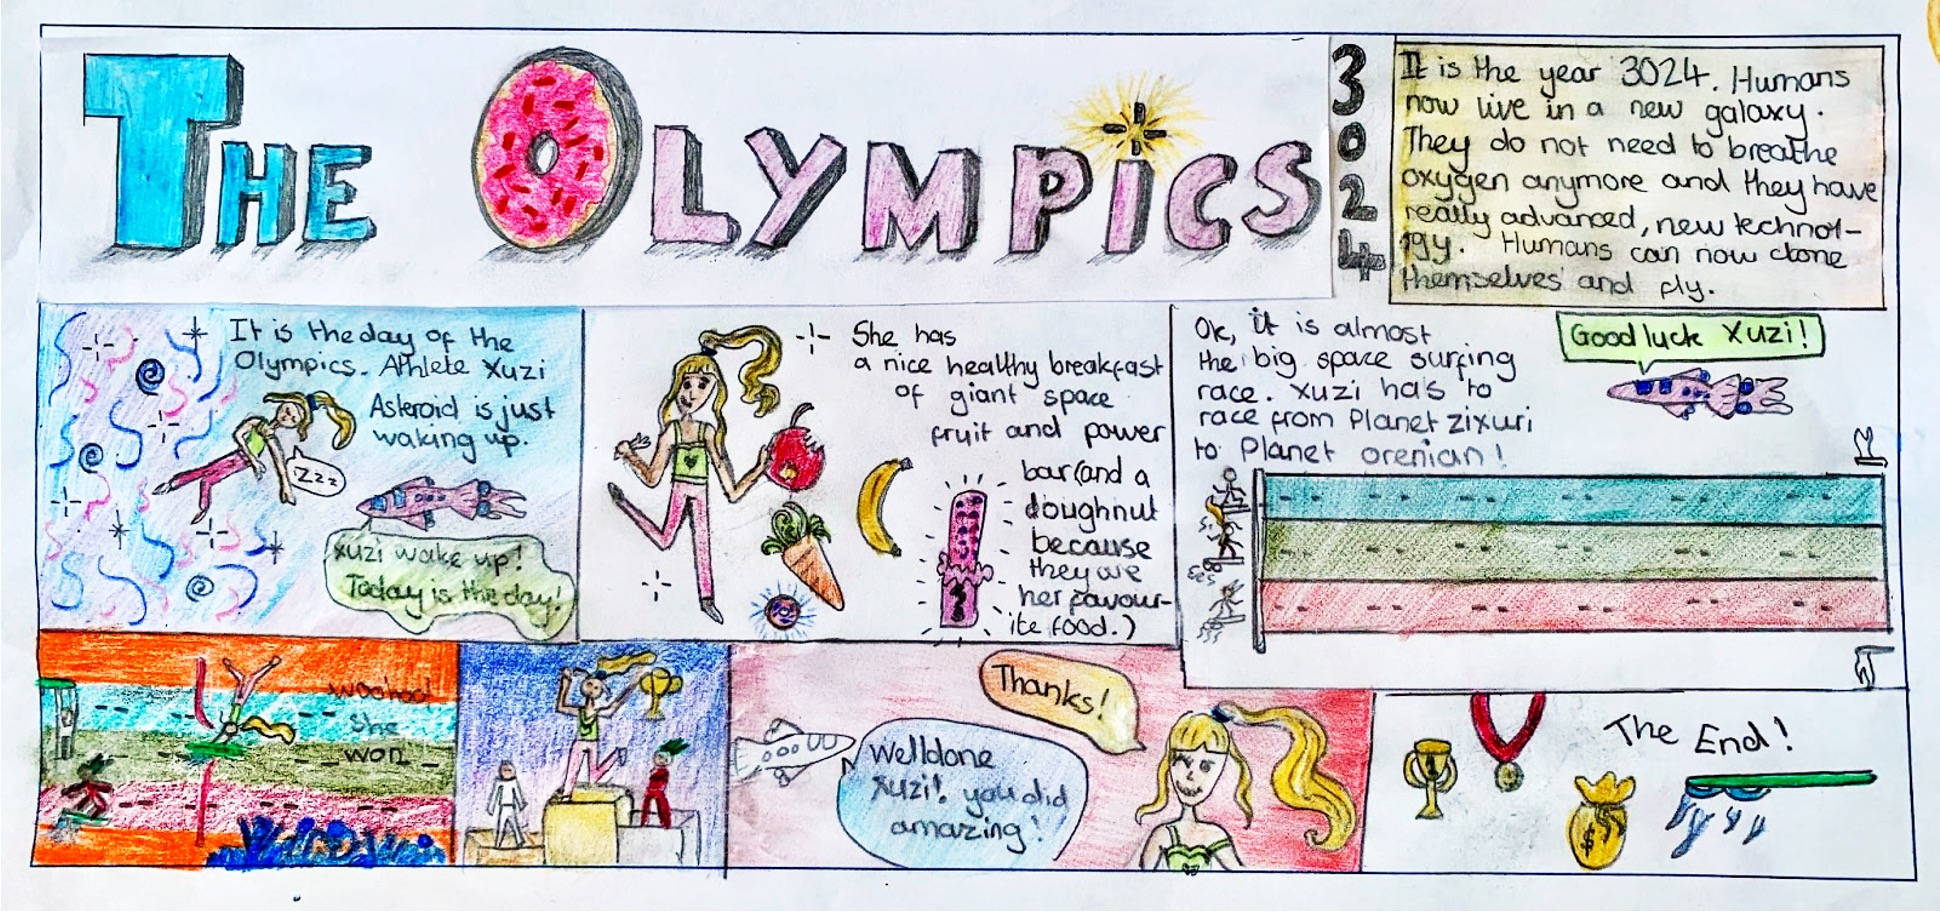 THE OLYMPICS
3024
It is the year 3024. Humans
now live in a new galaxy.
They do not need to breathe
oxygen anymore and they have
really advanced, new technol-
ogy. Humans can now clone
themselves and fly.
It is the day of the
Olympics. Athlete Xuzi
Asteroid is just
waking up.
Zzz
Xuzi wake up!
Today is the day!
She has
a nice healthy breakfast
of giant space
fruit and power
bar (and a
doughnut
because
they are
her favour-
ite food.)
Ok, it is almost
the big space surfing
race. Xuzi has to
race from Planet zixuri
to Planet orenian!
Good luck Xuzi!
woohoo!
She
won
Welldone
Xuzi! you did
amazing!
Thanks!
The End!
$